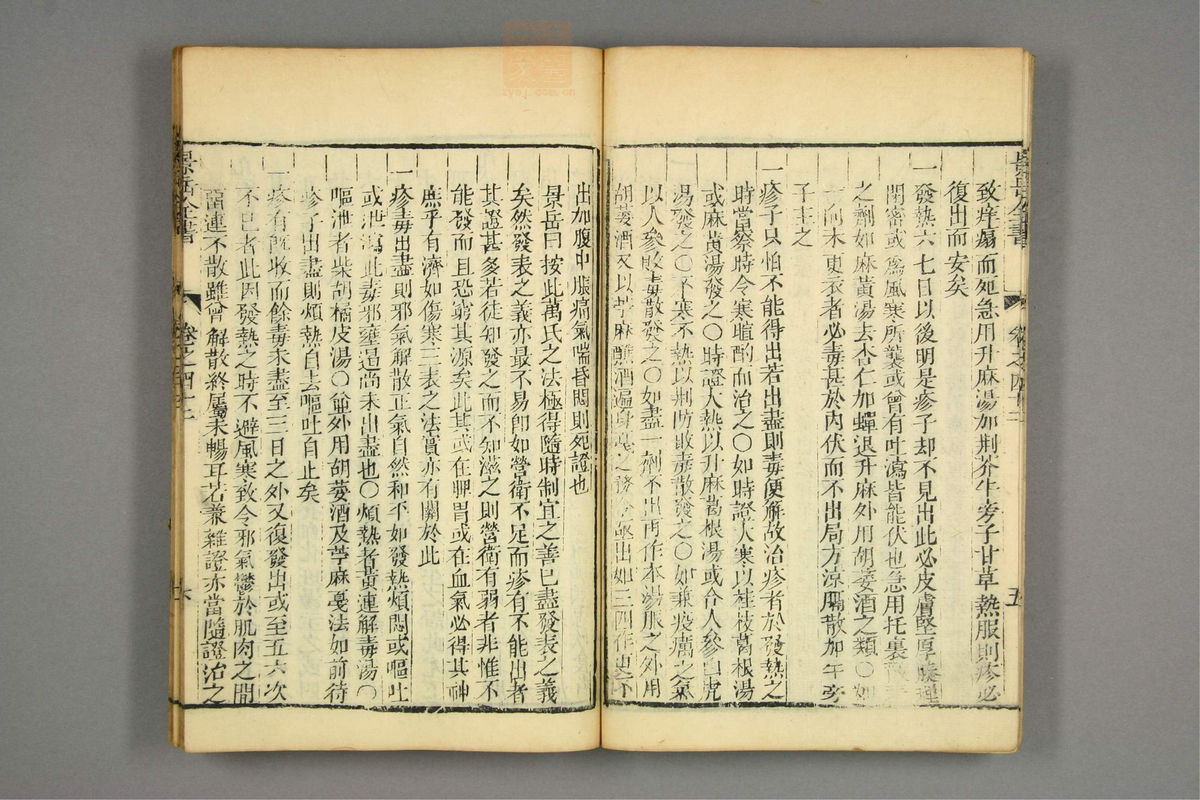 致痒塌而死急用升麻湯加荆芥牛旁子甘草熱服則疹必
復出而安矣
一發熱六七日以後明是疹子却不見出此必皮膚堅厚腠理
閉密或為風寒所襲或曾有吐瀉皆能伏也急用托裏發表
之劑如麻黃湯去杏仁加蟬退升麻外用胡荽酒之類〇如
一向未更衣者必毒甚於內伏而不出局方涼膈散加牛旁
子主之
一疹子只怕不能得出若出盡則毒便解故治疹者於發熱之
時當察時令寒暄酌而治之〇如時證大寒以桂枝葛根湯
或麻黃湯發之〇時證大熱以升麻葛根湯或合人參白虎
湯發之〇不寒不熱以荆防敗毒散發之〇如兼疫癘之氣
以人參敗毒散發之〇如盡一劑不出再作本湯服之外用
胡荽酒又以苧麻蘸酒遍身戞之務令亟出如三四作更不
出加腹中脹痛氣喘昏悶則死證也
景岳曰按此萬氏之法極得隨時制宜之善已盡發表之義
矣然發表之義亦最不易即如營衛不足而疹有不能出者
其證甚多若徒知發之而不知滋之則營衛有弱者非惟不
能發而且恐窮其源矣此其或在脾胃或在血氣必得其神
庶乎有濟如傷寒三表之法實亦有關於此
一疹毒出盡則邪氣解散正氣自然和平如發熱煩悶或嘔吐
或泄瀉此毒邪壅遏尚未出盡也〇煩熱者黃連解毒湯〇
嘔泄者柴胡橘皮湯〇並外用胡荽酒及苧麻戞法如前待
疹子出盡則煩熱自去嘔吐自止矣
一疹有既收而餘毒未盡至三日之外又復發出或至五六次
不已者此因發熱之時不避風寒致令邪氣鬱於肌肉之間
留連不散雖曾解散終屬未暢耳若兼雜證亦當隨證治之
景岳全書
卷之四十三
五
景岳全書
卷之四十三
六